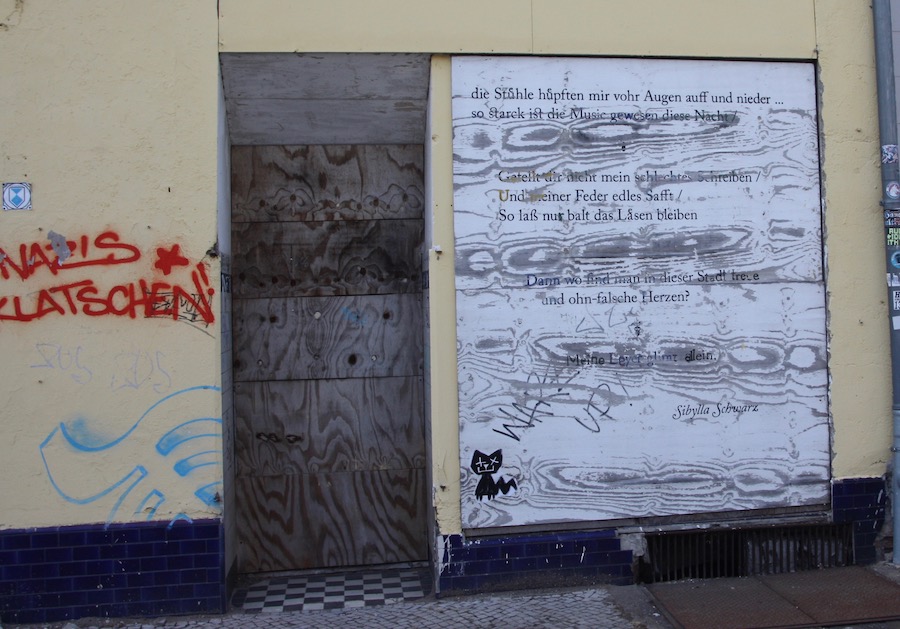 NAZIS
KLATSCHEN!
die Stůhle hůpften mir vohr Augen auff und nieder ...
so starck ist die Music gewesen diese Nacht /
Gefellt dir nicht mein schlechtes Schreiben /
Und meiner Feder edles Safft /
So laß nur balt das Låsen bleiben
Dann wo find man in dieser Stadt treue
und ohn-falsche Herzen?
Meine Leyer glimt allein.
Sibylla Schwarz